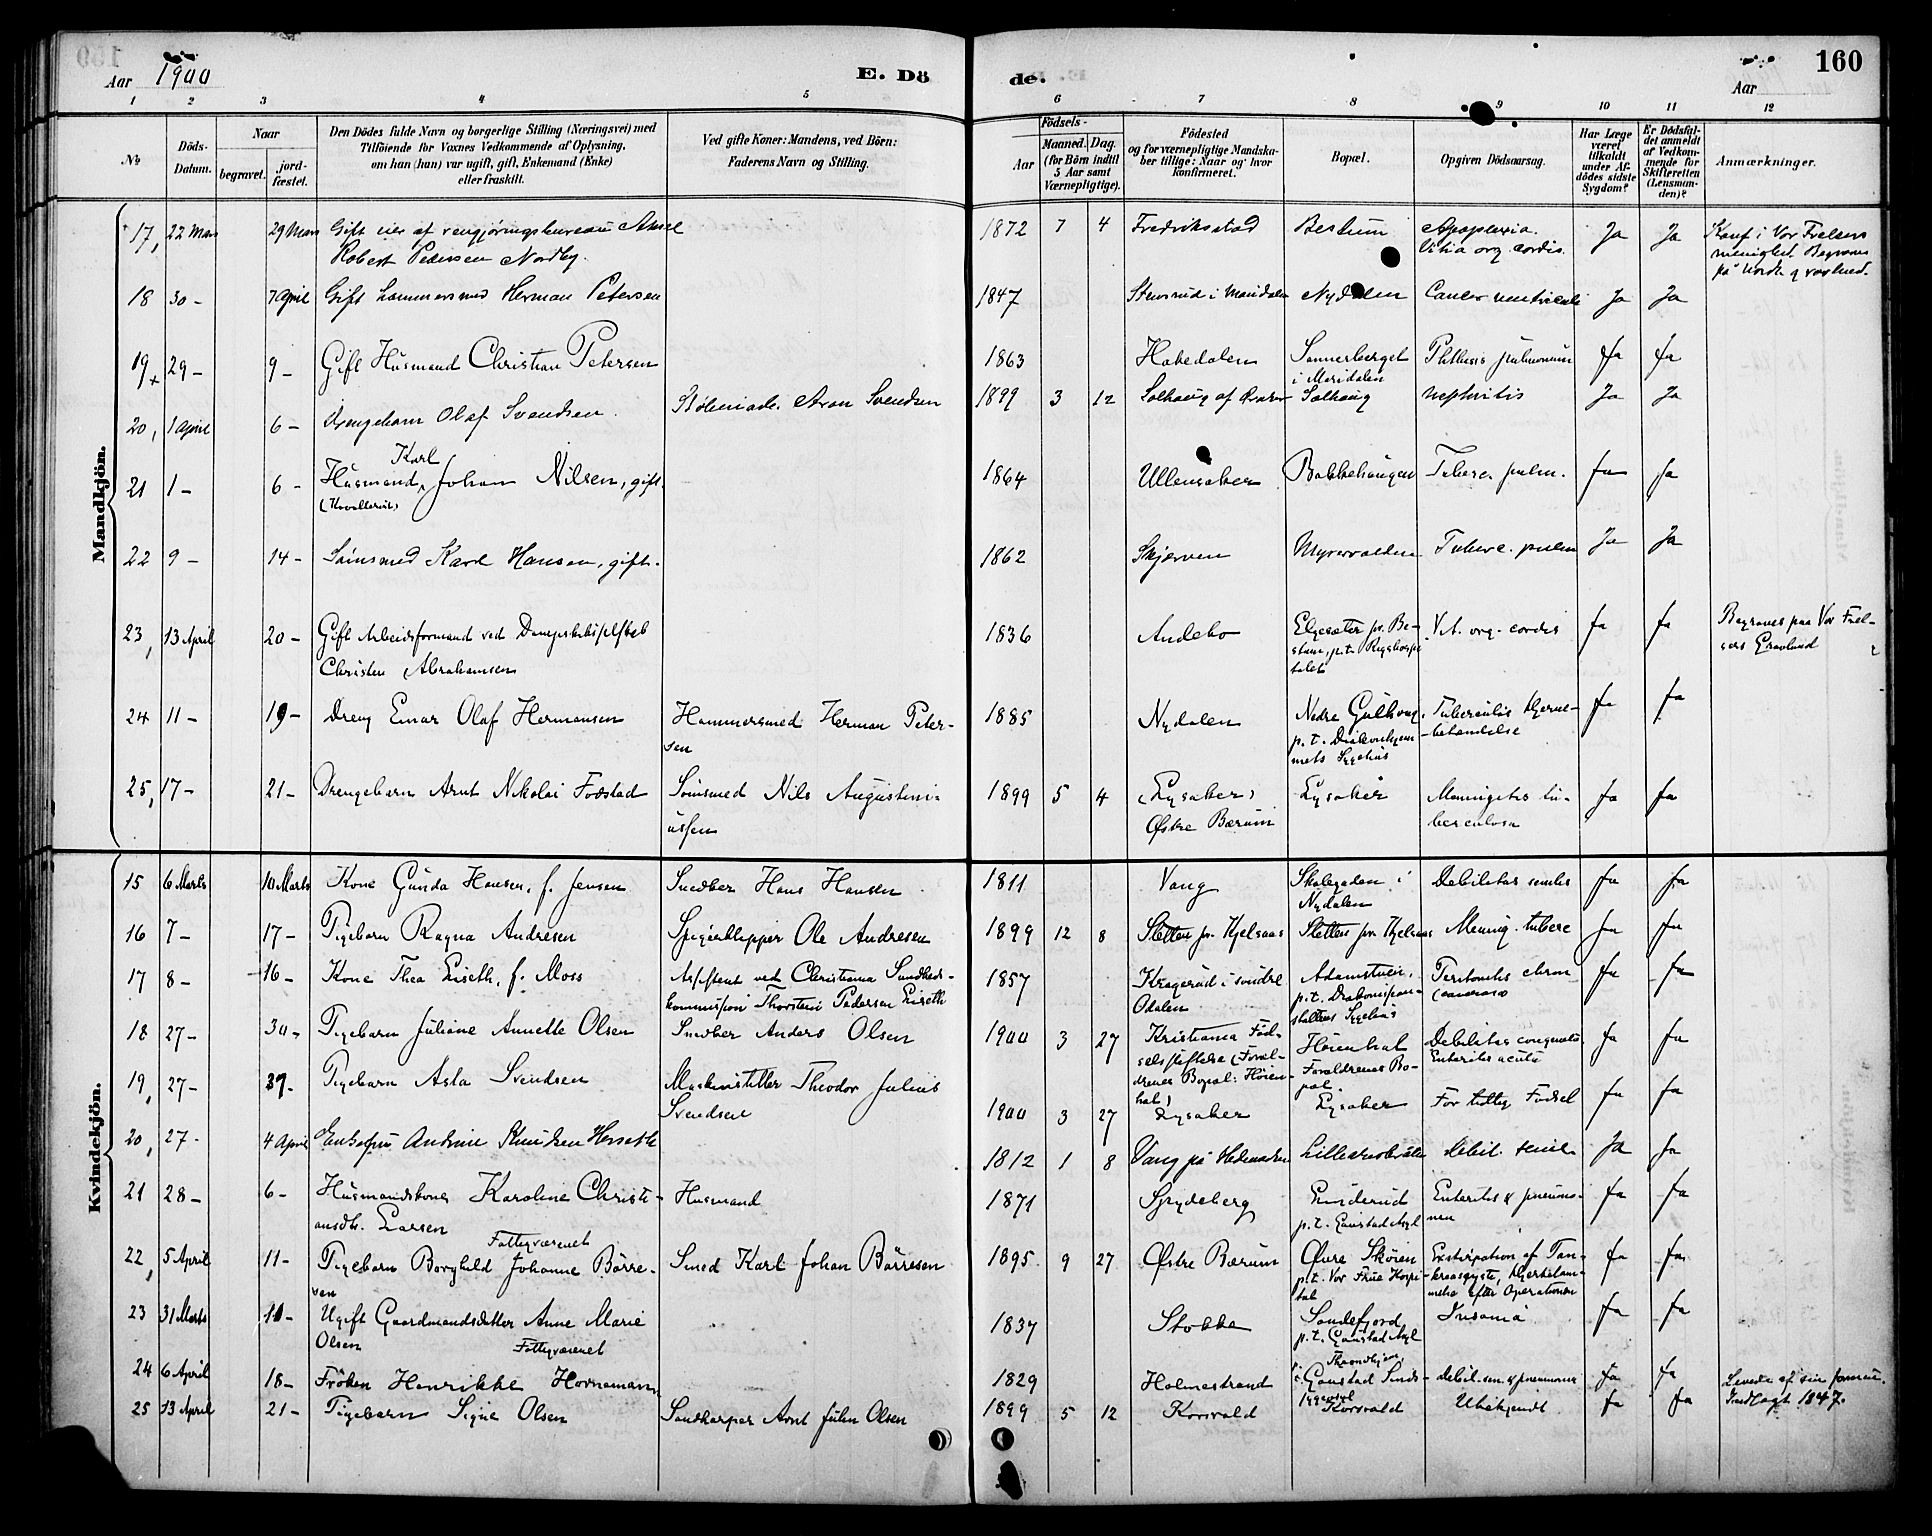 Aar 1900
E. Dö
de.
Aar
160
1 2 3 4 5 6 7 8 9 10 11 12
№
Döds-Datum.
Naar
begravet.
jord-fæstet.
Den Dödes fulde Navn og borgerlige Stilling (Næringsvei) med
Tilföiende for Voxnes Vedkommende af Oplysning,
om han (hun) var ugift, gift, Enkemand (Enke)
eller fraskilt.
Ved gifte Koner: Mandens, ved Börn:
Faderens Navn og Stilling.
Födsels-
Aar
Maaned. Dag.
(for Börn indtil
5 Aar samt
Værnepligtige).
Födested
og for værnepligtige Mandska-
ber tillige: Naar og hvor
konfirmeret.
Bopæl.
Opgiven Dödsaarsag.
Har Læge
været
tilkaldt
under Af-
dödes sidste
Sygdom?
Er Dödsfal-
det anmeldt
af Vedkom-
mende for
Skifteretten
(Lensman-
den)?
Anmærkninger.
Mandkjön.
17, 22 Mars 29 Mars Gift eier af rengjøringsbureau Aksel
Robert Pedersen Nordby. 1872 7 4 Fredriksstad Bestum Apoplexia.
Vitia org. cordis. Ja Ja Konf i Vor Frelsers
menighet. Begraves
på Nordre gravlund.
18 30 - 7 April Gift hammersmed Herman Petersen 1847 Stensrud i Maridalen Nydalen Cancer ventriculi Ja Ja
19 29 - 9 - Gift Husmand Christian Petersen 1863 Hakedalen Sannerberget
i Maridalen Phthisis pulmonum Ja Ja
20, 1 April 6 - Drengebarn Olaf Svendsen. Støberiarb. Aron Svendsen 1899 3 12 Solhaug af Solhaug Nephritis Ja Ja
21 1 - 6 - Husmand, Karl Johan Nilsen, gift.
1864 Ullensaker Bakkehaugen Tuberc. pulm. Ja Ja
22 9 - 14 - Sømsmed Karl Hansen, gift. 1862 Skjerven Myrervolden Tuberc. pulm Ja Ja
23, 13 April 20 - Gift Arbeidsformand ved Dampskibsselskab
Christen Abrahamsen 1836 Andebo Elgesæter pr. Be-
stum, p.t. Rigshospi-
talet Vit. org. cordis Ja Ja Begraves paa Vor Frel-
sers Gravlund
24 11 - 19 - Dreng Einar Olaf Hermansen Hammersmed Herman Peter-
sen 1885 Nydalen Nedre Gulhaug,
p.t. Diakonhjem-
mets Sygehus Tuberculøs Hjerne-
betændelse Ja Ja
25, 17 - 21 - Drengebarn Arnt Nikolai Fodstad Sømsmed Nils Augustini-
ussen 1899 5 4 (Lysaker)
Østre Bærum Lysaker Meningitis tu-
berculosa Ja Ja
Kvindekjön.
15 6 Marts 10 Marts Kone Gunda Hansen, f. Jensen Snedker Hans Hansen 1811 Vang Skolegaden i
Nydalen Debilitas senilis Ja Ja
16 7 - 17 - Pigebarn Ragna Andresen Spigerklipper Ole Andresen 1899 12 8 Sletten pr. Kjelsaas Sletten pr. Kjelsaas Mening. tuberc Ja Ja
17 8 - 16 - Kone Thea Liseth, f. Moss Assistent ved Christiania Sundheds-
kommission Thorstein Pedersen Liseth 1857 Kragerud i søndre
Odalen Adamstuen,
p.t. Diakonissean-
staltens Sygehus Peritonitis chron
Ja Ja
18 27 - 30 - Pigebarn Juliane Annette Olsen Snedker Anders Olsen 1900 3 27 Kristiania Fød-
selsstiftelse (Foræl-
drenes Bopæl: Høien-
hal) Høienhal
Forældrenes Bo-
pæl. Debilitas congenita
Enteritis acuta Ja Ja
19, 27 - 29 - Pigebarn Asta Svendsen Maskinstiller Theodor Julius
Svendsen 1900 3 27 Lysaker Lysaker For tidlig Fødsel Ja Ja
20, 27 - 4 April Enkefru Andrine Knudsen Herseth 1812 1 8 Vang på Hedemarken Debil. senil. Ja Ja
21 28 - 6 - Husmandskone Karoline Christi-
ansdtr. Larsen Husmand 1871 Spydeberg
p.t. Gaustad Asyl Enteritis & pneumo-
nia Ja Ja
22, 5 April 11 - Fattigvæsenet
Pigebarn Borghild Johanne Børre-
sen Smed Karl Johan Börresen 1895 9 27 Østre Bærum Øvre Skøien
p.t. Vor Frue Hospi-
tal Exstirpation af Pan-
kreascyste, Hjertelam-
melse efter Operationen Ja Ja
23 31 Marts 10 - Ugift Gaardmandsdatter Anne Marie
Olsen 1837 Stokke Sandefjord,
p.t. Gaustad Asyl Insania Ja Ja
24 6 April 18 - Fattigvæsenet
Fröken Henrikke Hornemann 1829 Holmestrand Throndhjem,
Gaustad Sinds-
sygeasyl debil. sen. & pneumonia Ja Ja Levede af sin formue.
Indlagt 1847.
25 13 April 21 - Pigebarn Signe Olsen Sandkjører Arnt Julin Olsen 1899 5 12 Korsvold Korsvold Ubekjendt. Ja Ja